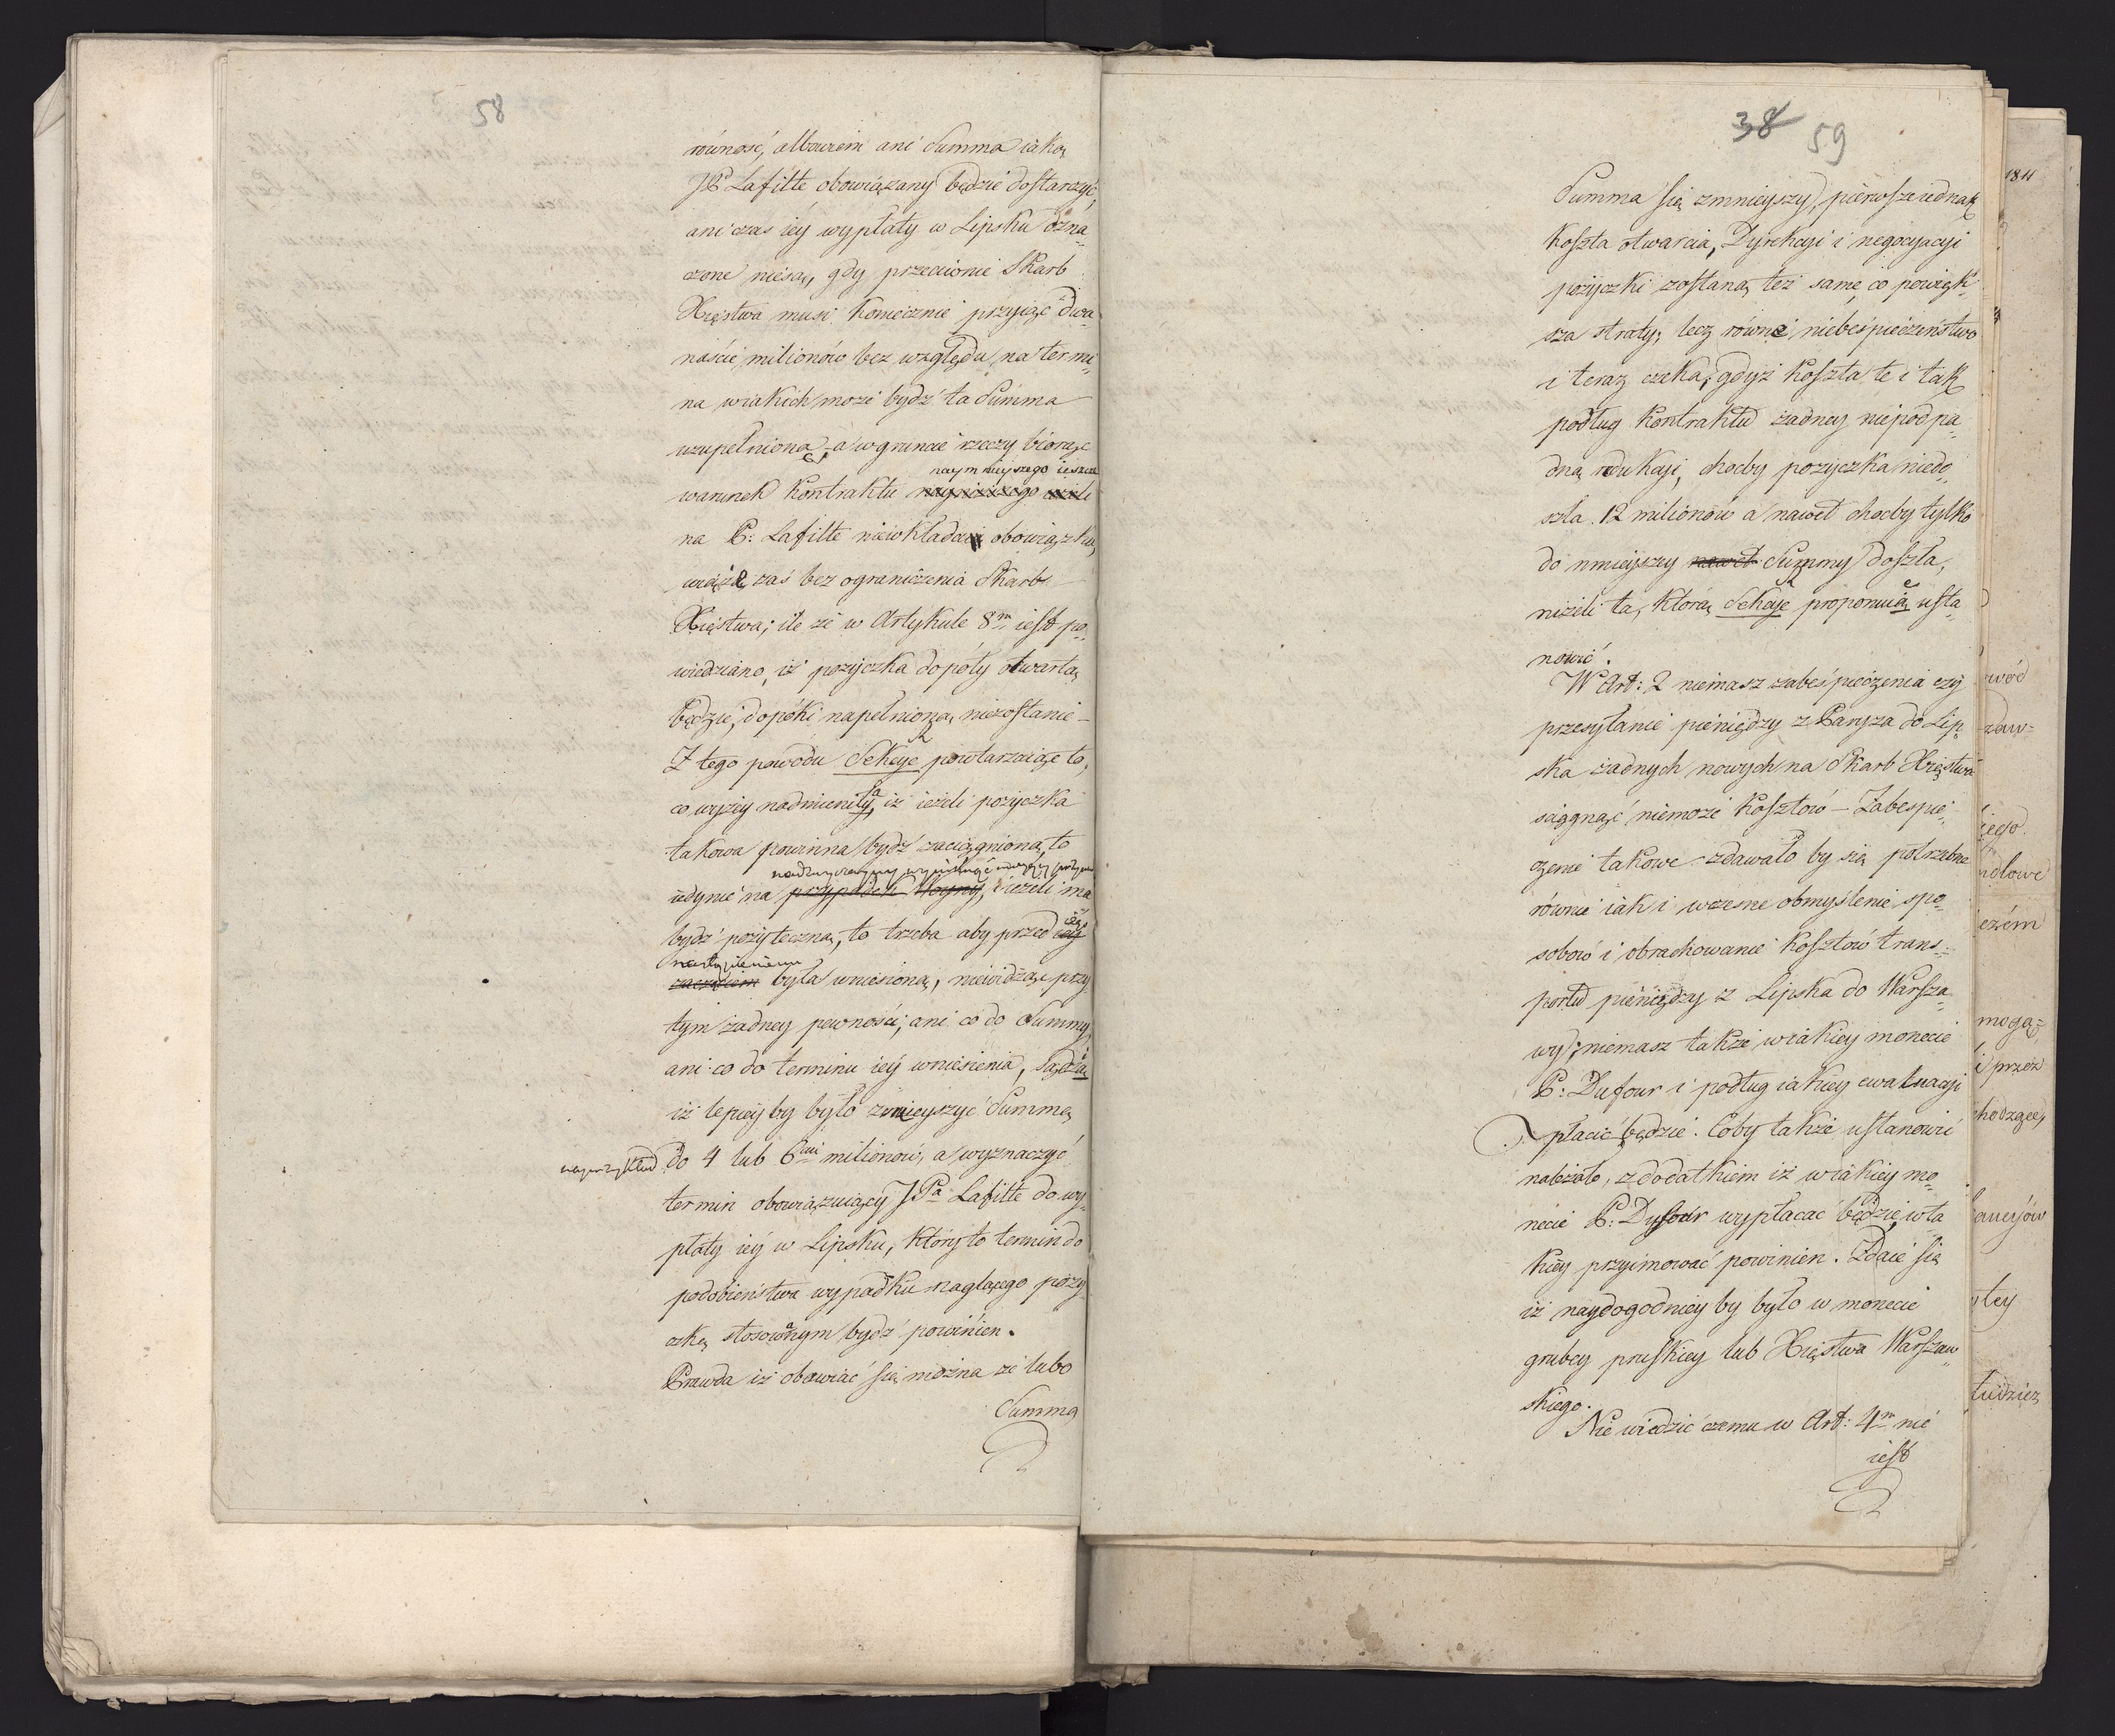 58
równość, albowiem ani Summa iaką
JP Lafitte obowiązany będzie dostarczyć,
ani czas iéy wypłaty w Lipsku ozna„
czone niesą, gdy przeciwnie Skarb
Xięstwa musi koniecznie przyiąć dwa„
naście milionów bez względu na termi„
na wiakich może bydź ta Summa
uzupełniona, a w gruncie rzeczy biorąc
naymnieyszego ieszcze
warunek Kontraktu
na P: Lafitte niewkłada obowiązku,
wiąże zaś bez ograniczenia Skarb
Xięstwa; ile że w Artykule 8m iest po„
wiedziano, iż pożyczka dopóty otwartą
będzie, dopóki napełnioną niezostanie –
Z tego powodu Sekcye powtarzaiąc to,
co wyżey nadmieniły, iż ieżeli pożyczka
takowa powinna bydź zaciągnioną, to
iedynie na przypadek Woyny, i ieżeli ma
bydź pożyteczną, to trzeba aby przed iéy
nastąpieniem
zaczęciem była wniesioną, niewidząc przy
tym żadney pewności, ani co do Summy,
ani co do terminu iéy wniesienia, sądzą
iż lepiéy by było zmnieyszyć Summę
naprzykład do 4 lub 6ciu milionów, a wyznaczyć
termin obowiązuiący JPa Lafitte do wy„
płaty iéy w Lipsku, który to termin do
podobieństwa wypadku naglącego poży„
czkę stosownym bydź powinien.
Prawda iż obawiać się można że lubo
Summa
38 59
Summa się zmnieyszy, pierwsze iednak
Koszta otwarcia, Dyrekcyi i negocyacyi
pożyczki zostaną też same, co powięk„
sza straty; lecz równe niebespieczeństwo
i teraz czeka, gdyż koszta te i tak
podług Kontraktu żadney niepodpa„
dną redukcyi, choćby pożyczka niedo„
szła 12 milionów a nawet choćby tylko
do mnieyszy nawet Summy doszła,
niżeli ta, którą Sekcye proponuią usta„
nowić.
W Art: 2 niemasz zabespieczenia czy
przesyłanie pieniędzy z Paryża do Lip„
ska żadnych nowych na Skarb Xięstwa
sciągnąć niemoże kosztów – Zabespie„
czenie takowe zdawało by się potrzebne
równie iak i wczesne obmyślenie spo„
sobów i obrachowanie kosztów trans„
portu pieniędzy z Lipska do Warsza„
wy; niemasz także wiakiey monecie
P: Dufour i podług iakiey ewaluacyi
płacić będzie. Coby także ustanowić
należało, z dodatkiem iż wiakiey mo„
necie P: Dufour wypłacać będzie, w ta„
kiéy przyimować powinien. Zdaie się
iż naydogodniey by było w monecie
grubey pruskiey lub Xięstwa Warszaw„
skiego.
Nie wiedzieć czemu w Art: 4m nie
iest
1811